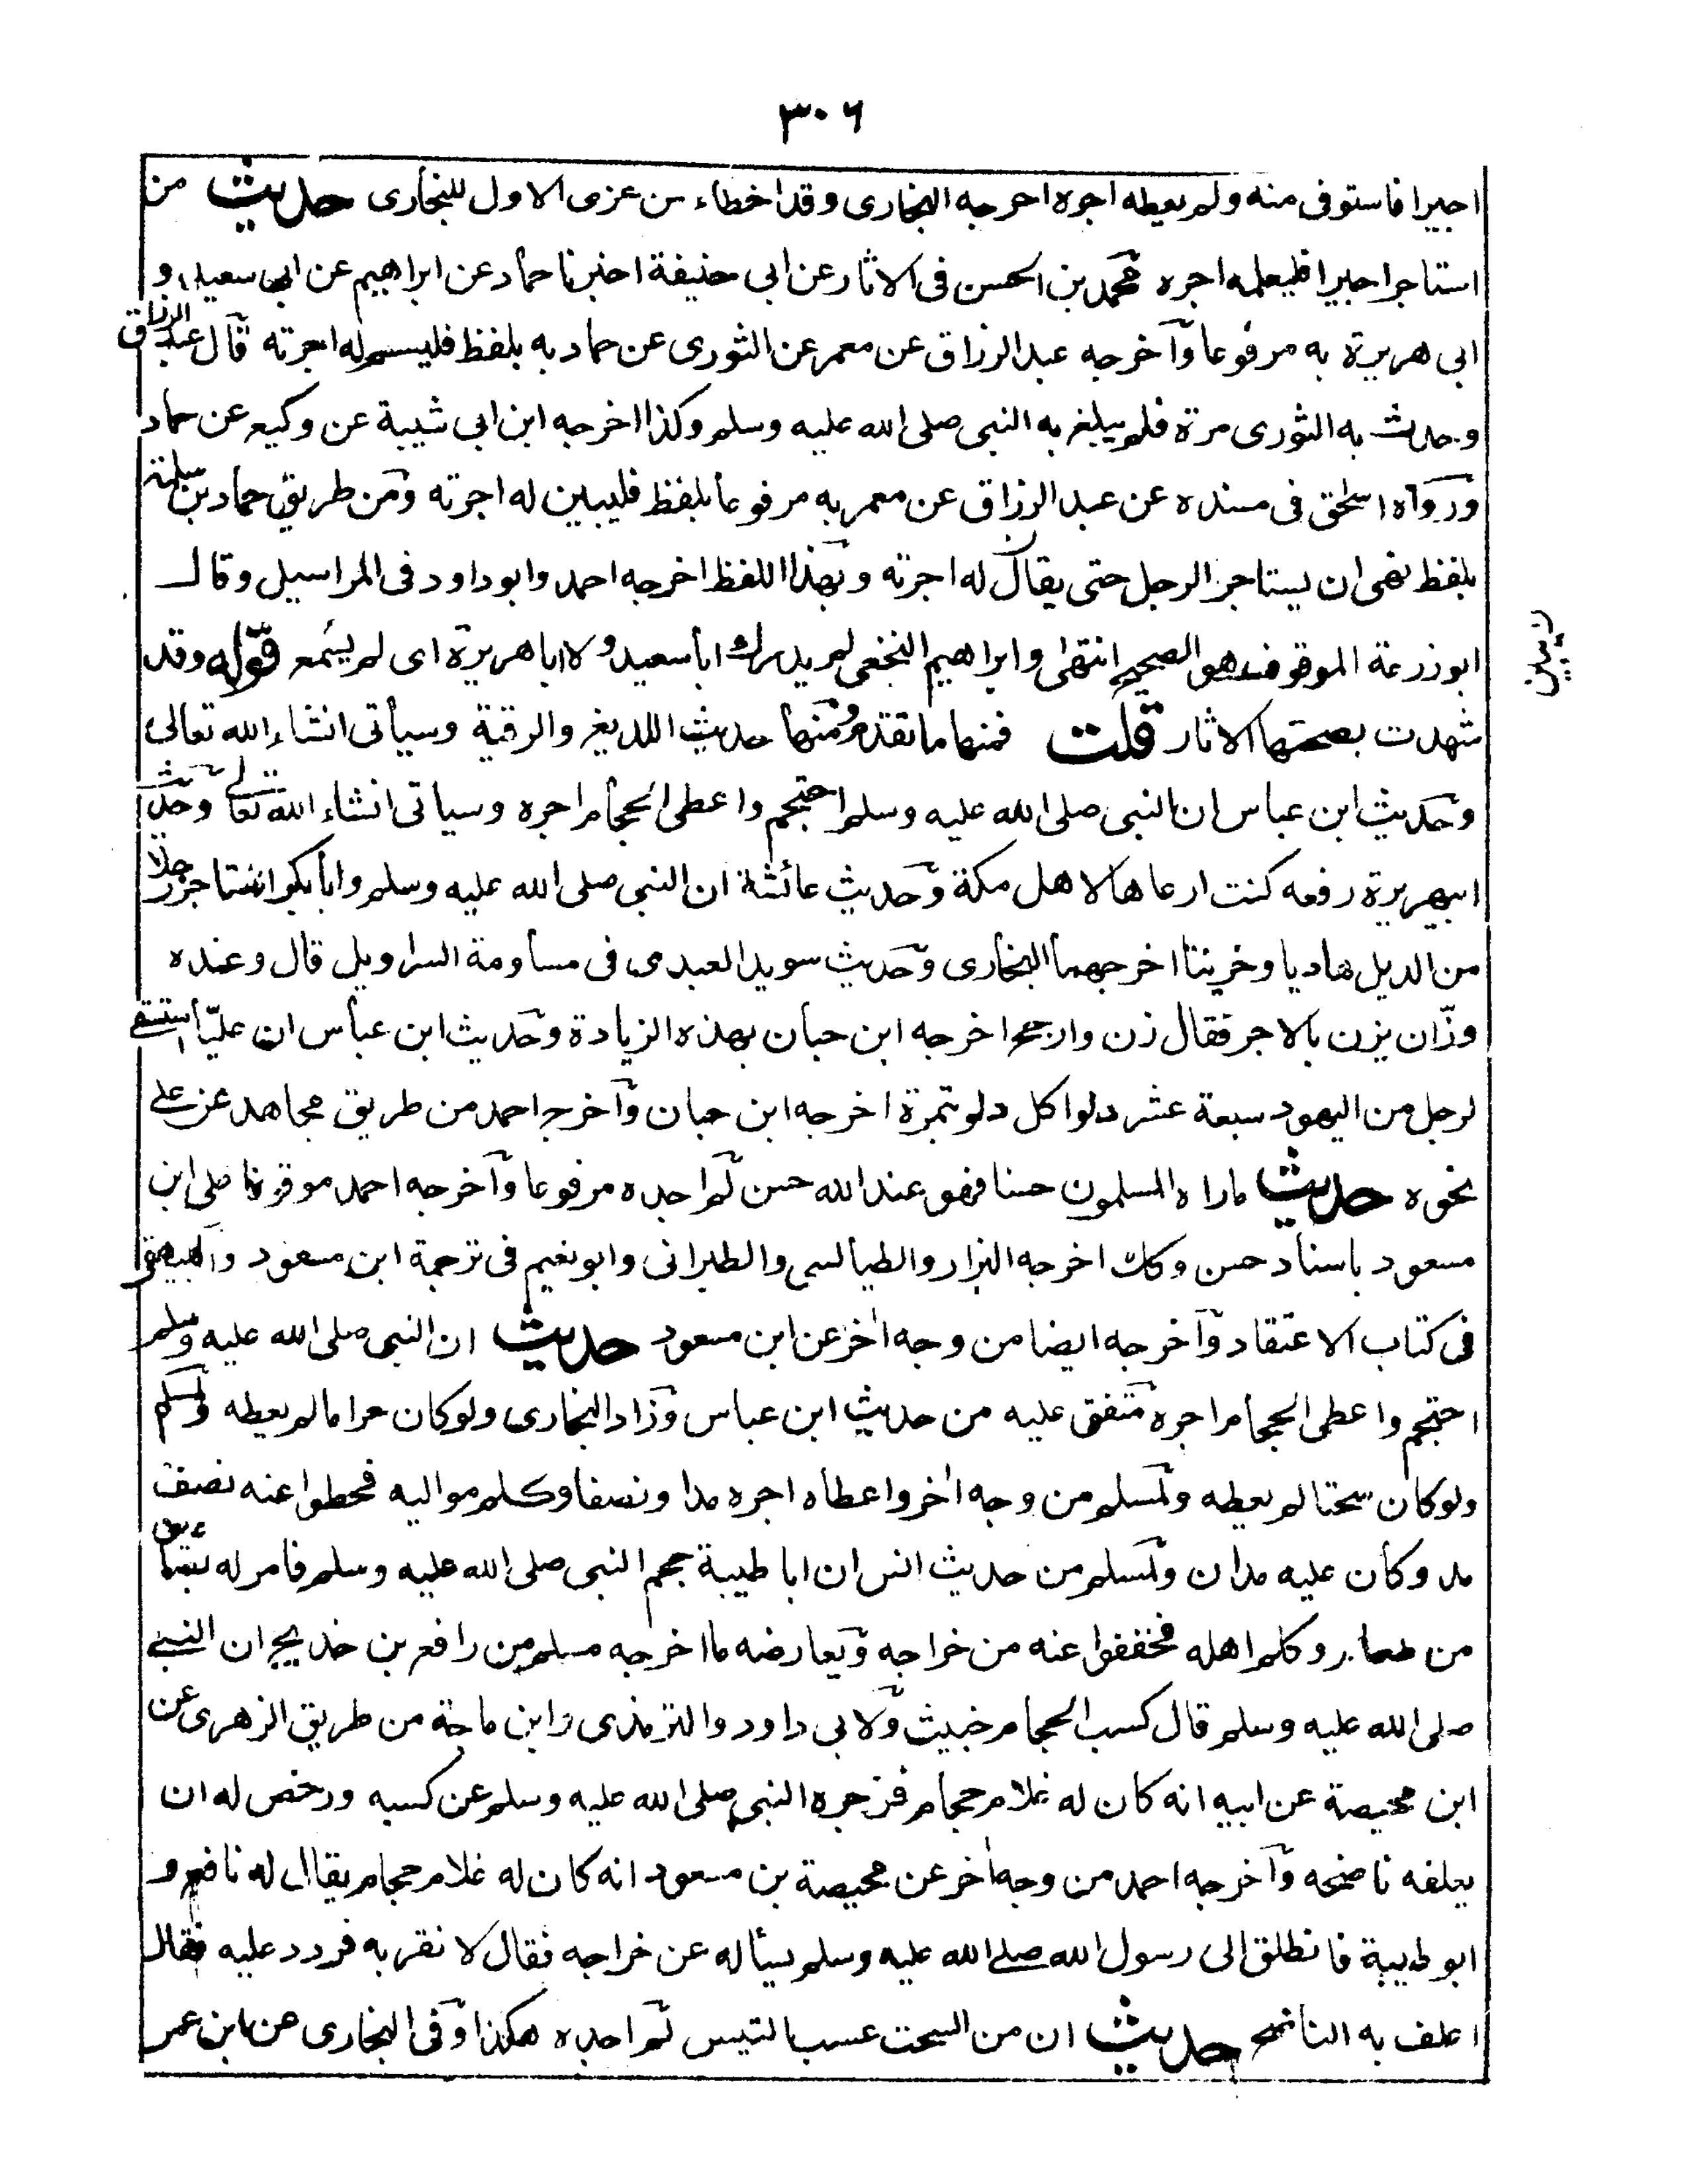 ٣٠٦
اجيرا فاستوفى منه ولم يعطه اجره اخرجه البخارى وقد اخطاء من عزى الاول للبخارى حديث من
استاجر اجيرا فليعلمه اجره محمد بن الحسن فى الاثار عن ابى حنيفة اخبرنا حماد عن ابراهيم عن ابى سعيد و
ابى هريرة به مرفوعا وآخرجه عبد الرزاق عن معمر عن الثورى عن حماد به بلفظ فليسم له اجرته قال عبد الرزاق
وحدث به الثورى مرة فلم يبلغ به النبى صلى الله عليه وسلم وكذا اخرجه ابن ابى شيبة عن وكيع عن حماد
ورواه اسحٰق فى مسنده عن عبد الرزاق عن معمر به مرفوعا بلفظ فليبين له اجرته ومن طريق حماد بن سلمة
بلفظ نهى ان يستاجر الرجل حتى يقال له اجرته وبهذا اللفظ اخرجه احمد وابو داود فى المراسيل وقال
ابو زرعة الموقوف هو الصحيح انتهى وابراهيم النخعى لم يدرك ابا سعيد ولا ابا هريرة اى لم يسمع قوله وقد
شهدت بصحتها الاثار قلت فمنها ما تقدم ومنها حديث اللديغ والرقية وسيأتى انشاء الله تعالى
وحديث ابن عباس ان النبى صلى الله عليه وسلم احتجم واعطى الحجام اجره وسياتى انشاء الله تعالى وحديث
ابيهريرة رفعه كنت ارعاها لاهل مكة وحديث عائشة ان النبى صلى الله عليه وسلم وابا بكر استاجر رجلا
من الديل هاديا وخريتا اخرجهما البخارى وحديث سويد العبدى فى مساومة السراويل قال وعنده
وزّان يزن بالاجر فقال زن وارجح اخرجه ابن حبان بهذه الزيادة وحديث ابن عباس ان عليّا استسقى
لرجل من اليهود سبعة عشر دلوا كل دلو بتمرة اخرجه ابن حبان وآخرجه احمد من طريق مجاهد عن على
نحوه حديث ماراه المسلمون حسنا فهو عند الله حسن لم اجده مرفوعا وآخرجه احمد موقوفا على ابن
مسعود باسناد حسن وكك اخرجه البزار والطيالسى والطبرانى وابو نعيم فى ترجمة ابن مسعود والبيهقى
فى كتاب الاعتقاد وآخرجه ايضا من وجه اٰخر عن ابن مسعود حديث ان النبى صلى الله عليه وسلم
احتجم واعطى الحجام اجره متفق عليه من حديث ابن عباس وزاد البخارى ولو كان حراما لم يعطه ولمسلم
ولو كان سحتا لم يعطه ولمسلم من وجه اٰخر واعطاه اجره مدا ونصفا وكلم مواليه فحطوا عنه نصف
مد وكان عليه مدان ولمسلم من حديث انس ان ابا طيبة حجم النبى صلى الله عليه وسلم فامر له بصاع
من وكلم اهله فخففوا عنه من خراجه ويعارضه ما اخرجه مسلم من رافع بن خديج ان النبى
صلى الله عليه وسلم قال كسب الحجام خبيث ولابى داود والترمذى وابن ماجة من طريق الزهرى عن
ابن محيصة عن ابيه انه كان له غلام حجام فزجره النبى صلى الله عليه وسلم عن كسبه ورخص له ان
يعلفه ناضحه وآخرجه احمد من وجه اٰخر عن محيصة بن مسعود انه كان له غلام حجام يقال له نافع و
ابو طيبة فانطلق الى رسول الله صلى الله عليه وسلم يسأله عن خراجه فقال لا نقربه فردد عليه فقال
اعلف به الناضح حديث ان من السحت عسب التيس لم اجده هكذا وفى البخارى عن ابن عمر